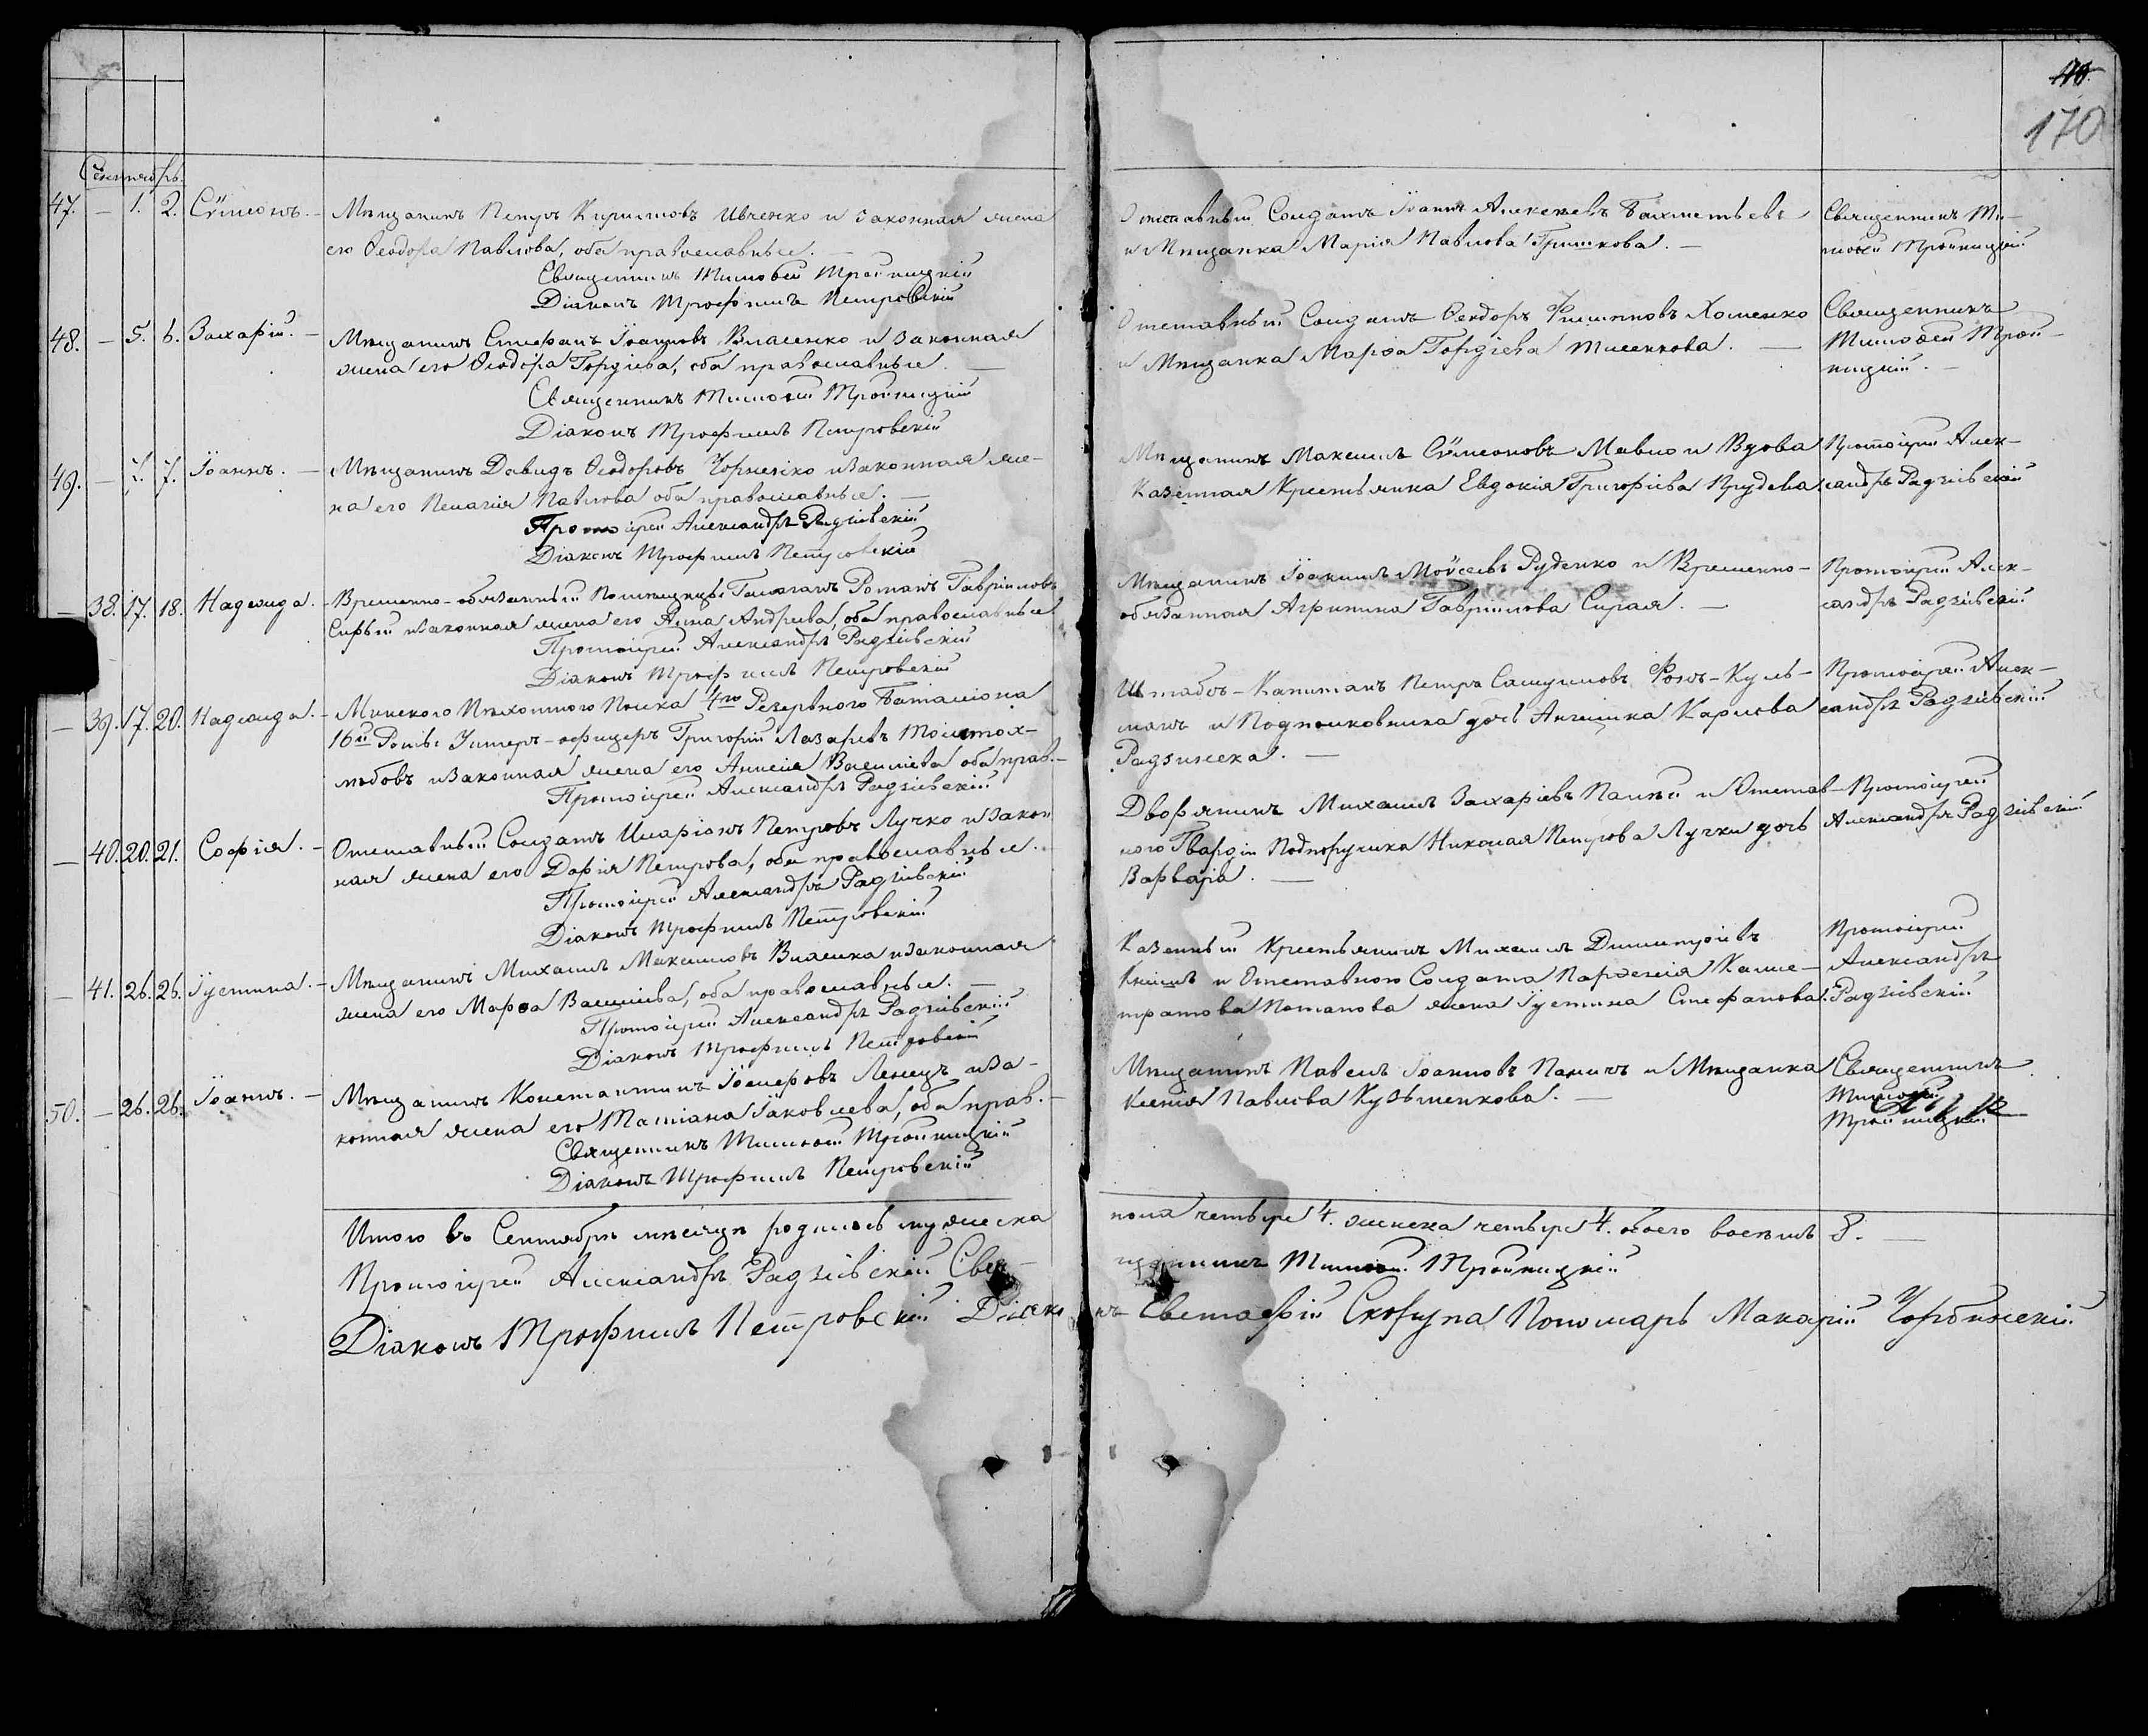 40.
170
Сентябрь.
47. — 1. 2. Сѵмеонъ. —
Мѣщанинъ Петръ Кирилловъ Ивченко и законная жена
его Ѳеодора Павлова, оба православные. —
Священникъ Тимоѳей Тройницкій
Діаконъ Трофимъ Петровскій
Отставный Солдатъ Іоаннъ Алексѣевъ Бахметьевъ
и Мѣщанка Марія Павлова Гришкова. —
Священникъ Ти-
моѳей Тройницкій
48. — 5. 6. Захарій. —
Мѣщанинъ Стефанъ Іоанновъ Власенко и законная
жена его Ѳеодора Гордіева, оба православные. —
Священникъ Тимоѳей Тройницкій
Діаконъ Трофимъ Петровскій
Отставный Солдатъ Ѳеодоръ Филипповъ Хоменко
и Мѣщанка Марѳа Гордіева —
Священникъ
Тимоѳей Трой-
ницкій. —
49. — 7. 7. Іоаннъ. —
Мѣщанинъ Давидъ Ѳеодоровъ Чорненко и законная же-
на его Пелагія Павлова оба православные. —
Протоіерей Александръ Радзіевскій
Діаконъ Трофимъ Петровскій
Мѣщанинъ Максимъ Сѵмеоновъ Мавло и Вдова
Казенная Крестьянка Евдокія Григоріева Прудева.
Протоіерей Алек-
сандръ Радзіевскій
— 38. 17. 18. Надежда. —
Временно-обязанный Помѣщицы Галаганъ Романъ Гавриловъ
Сирый и законная жена его Анна Андреева, оба православные
Протоіерей Александръ Радзіевскій
Діаконъ Трофимъ Петровскій
Мѣщанинъ Іоакимъ Моѵсеевъ Руденко и Временно-
обязанная Агрипина Гаврилова Сирая. —
Протоіерей Алек-
сандръ Радзіевскій
— 39. 17. 20. Надежда. —
Минского Пѣхотного Полка 4го Резервного Баталіона
16й Роты Унтеръ-офицеръ Григорій Лазаревъ
и законная жена его Василіева оба прав. —
Протоіерей Александръ Радзіевскій
Штабсъ-Капитанъ Петръ Самуиловъ Фонъ-Куль-
манъ и Подполковника дочь Ангелина Карлова
Радзинска. —
Протоіерей Алек-
сандръ Радзіевскій
— 40. 20. 21. Софія. —
Отставный Солдатъ Иларіонъ Петровъ Лучко и закон
ная жена его Дарія Петрова, оба православные. —
Протоіерей Александръ Радзіевскій
Діаконъ Трофимъ Петровскій
Дворянинъ Михаилъ Захаріевъ и Отстав-
ного Гвардіи Подпоручика Николая Петрова Лучки дочь
Варвара. —
Протоіерей
Александръ Радзіевскій
— 41. 26. 26. Іустина. —
Мѣщанинъ Михаилъ Максимовъ и законная
жена его Марѳа Василіева, оба православные. —
Протоіерей Александръ Радзіевскій
Діаконъ Трофимъ Петровскій
Казенный Крестьянинъ Михаилъ Димитріевъ
и Отставного Солдата Парѳенія Калис-
тратова Потапова жена Іустина Стефанова.
Протоіерей
Александръ
Радзіевскій
50. — 26. 26. Іоаннъ. —
Мѣщанинъ Константинъ Іосифовъ и за-
конная жена его Татіана Іаковлева, оба прав. —
Священникъ Тимоѳей Тройницкій
Діаконъ Трофимъ Петровскій
Мѣщанинъ Павелъ Іоанновъ и Мѣщанка
Ксенія Павлова Кузьменкова. —
Священникъ
Тимоѳей
Тройницкій
Итого въ Сентябрѣ мѣсяцѣ родилось мужеска пола четыре 4. женска четыре 4. обоего восемь 8. —
Протоіерей Александръ Радзіевскій Свя-щенникъ Тимоѳей Тройницкій
Діаконъ Трофимъ Петровскій Діаконъ Скорупа Пономарь Макарій